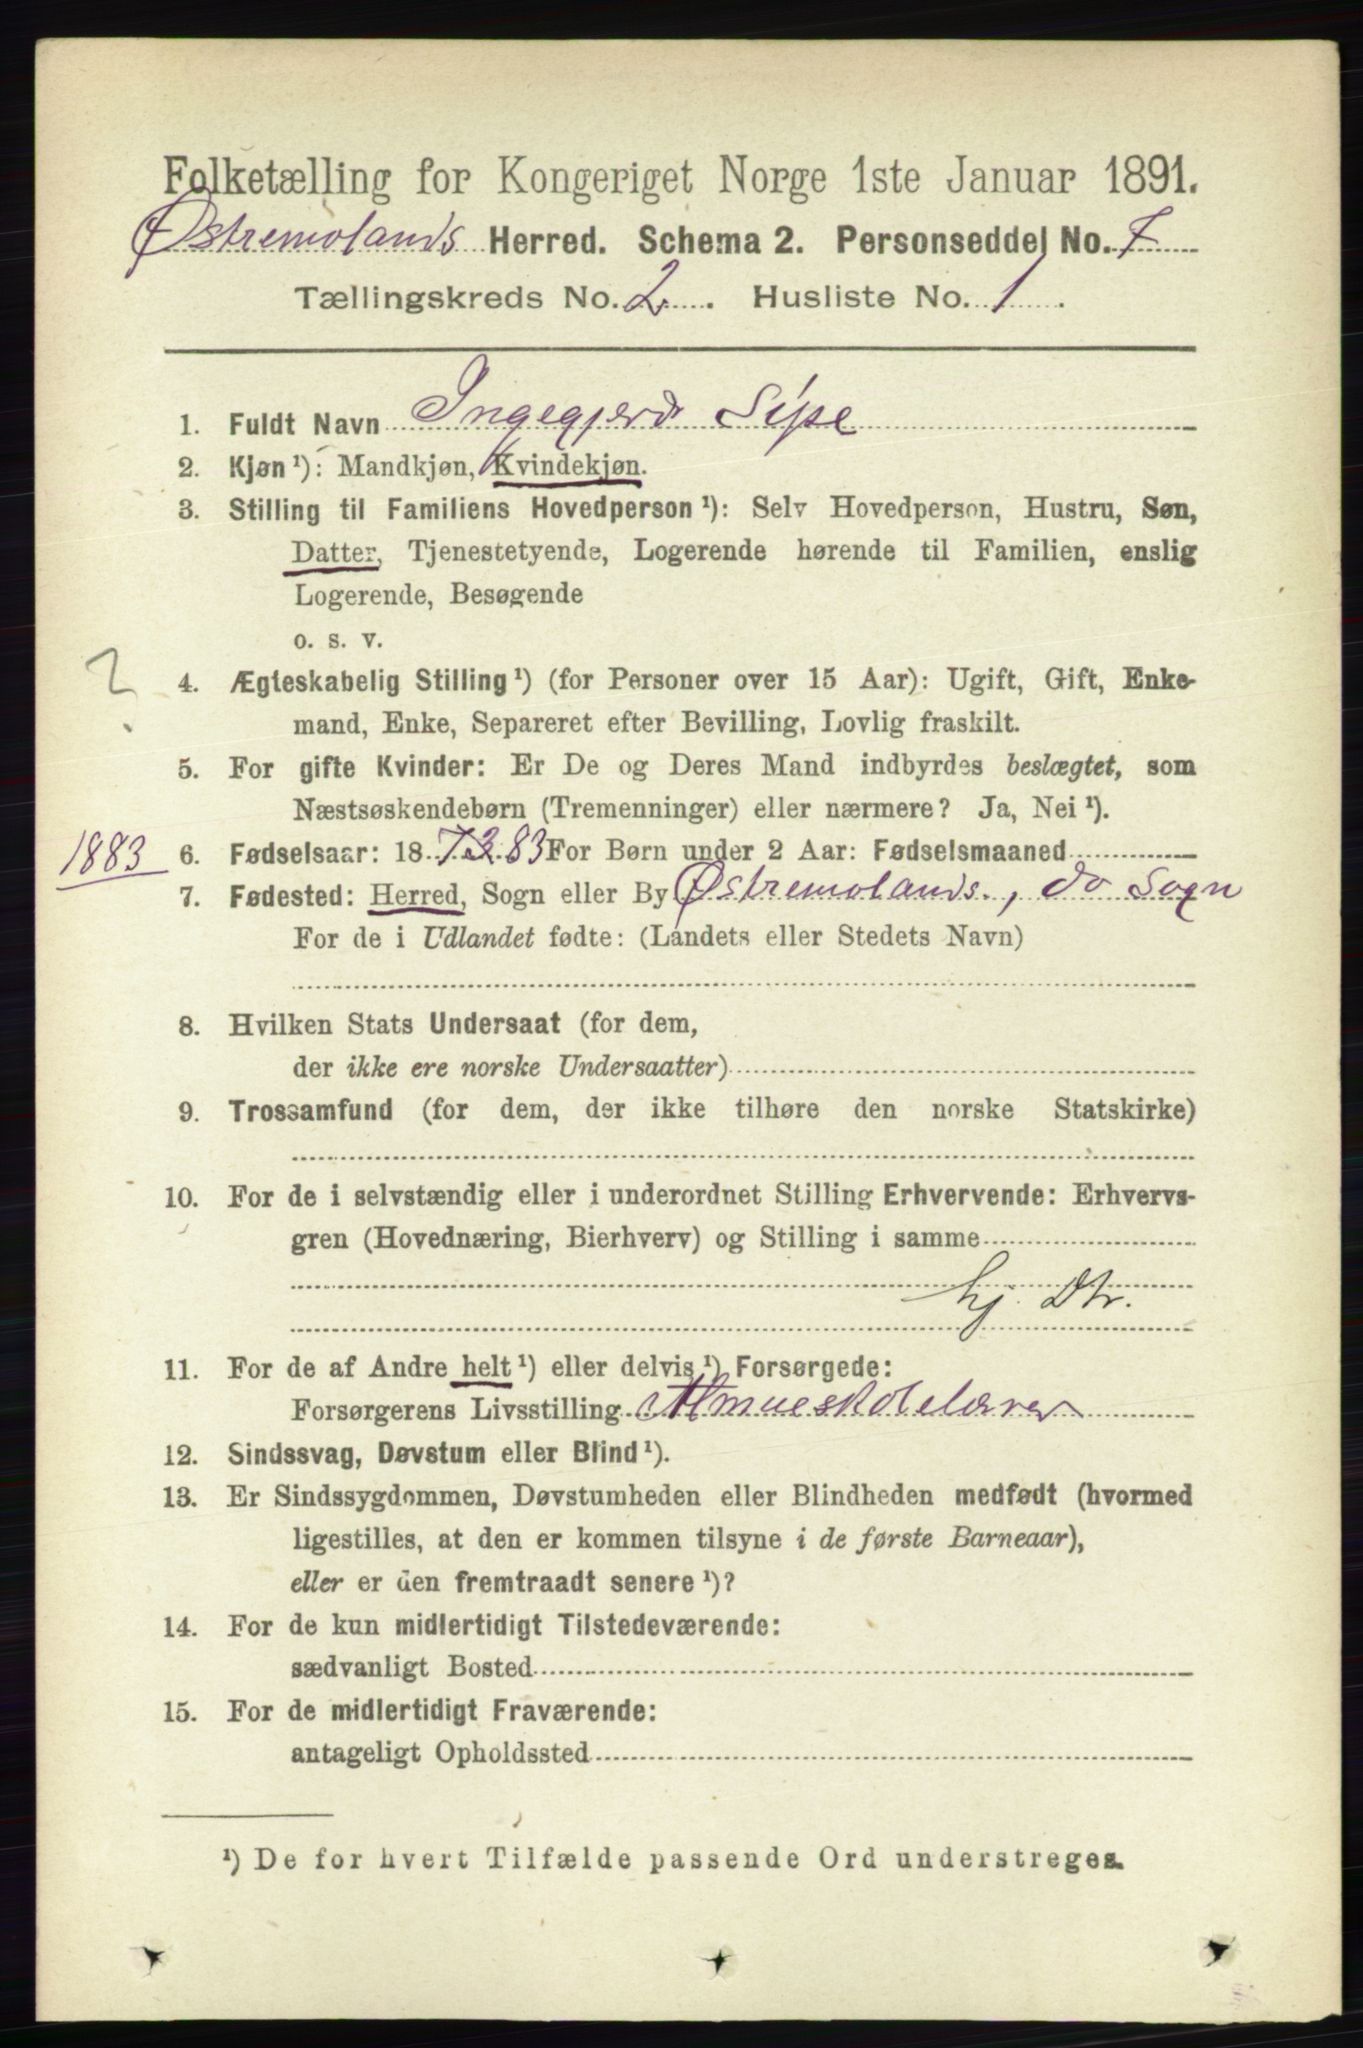 Folketælling for Kongeriget Norge 1ste Januar 1891.
Østremolands Herred. Schema 2. Personseddel No. 7
Tællingskreds No. 2. Husliste No. 1.
1. Fuldt Navn Ingegjerd Sipe
2. Kjøn ¹): Mandkjøn, Kvindekjøn.
3. Stilling til Familiens Hovedperson ¹): Selv Hovedperson, Hustru, Søn,
Datter, Tjenestetyende, Logerende hørende til Familien, enslig
Logerende, Besøgende
o. s. v.
?
4. Ægteskabelig Stilling ¹) (for Personer over 15 Aar): Ugift, Gift, Enke-
mand, Enke, Separeret efter Bevilling, Lovlig fraskilt.
5. For gifte Kvinder: Er De og Deres Mand indbyrdes beslægtet, som
Næstsøskendebørn (Tremenninger) eller nærmere? Ja, Nei ¹).
1883 6. Fødselsaar: 18 83 For Børn under 2 Aar: Fødselsmaaned
7. Fødested: Herred, Sogn eller By Østremolands., do Sogn
For de i Udlandet fødte: (Landets eller Stedets Navn)
8. Hvilken Stats Undersaat (for dem,
der ikke ere norske Undersaatter)
9. Trossamfund (for dem, der ikke tilhøre den norske Statskirke)
10. For de i selvstændig eller i underordnet Stilling Erhvervende: Erhvervs-
gren (Hovednæring, Bierhverv) og Stilling i samme
hj. Dtr.
11. For de af Andre helt ¹) eller delvis ¹) Forsørgede:
Forsørgerens Livsstilling Almueskolelærer
12. Sindssvag, Døvstum eller Blind ¹).
13. Er Sindssygdommen, Døvstumheden eller Blindheden medfødt (hvormed
ligestilles, at den er kommen tilsyne i de første Barneaar),
eller er den fremtraadt senere ¹)?
14. For de kun midlertidigt Tilstedeværende:
sædvanligt Bosted
15. For de midlertidigt Fraværende:
antageligt Opholdssted
¹) De for hvert Tilfælde passende Ord understreges.